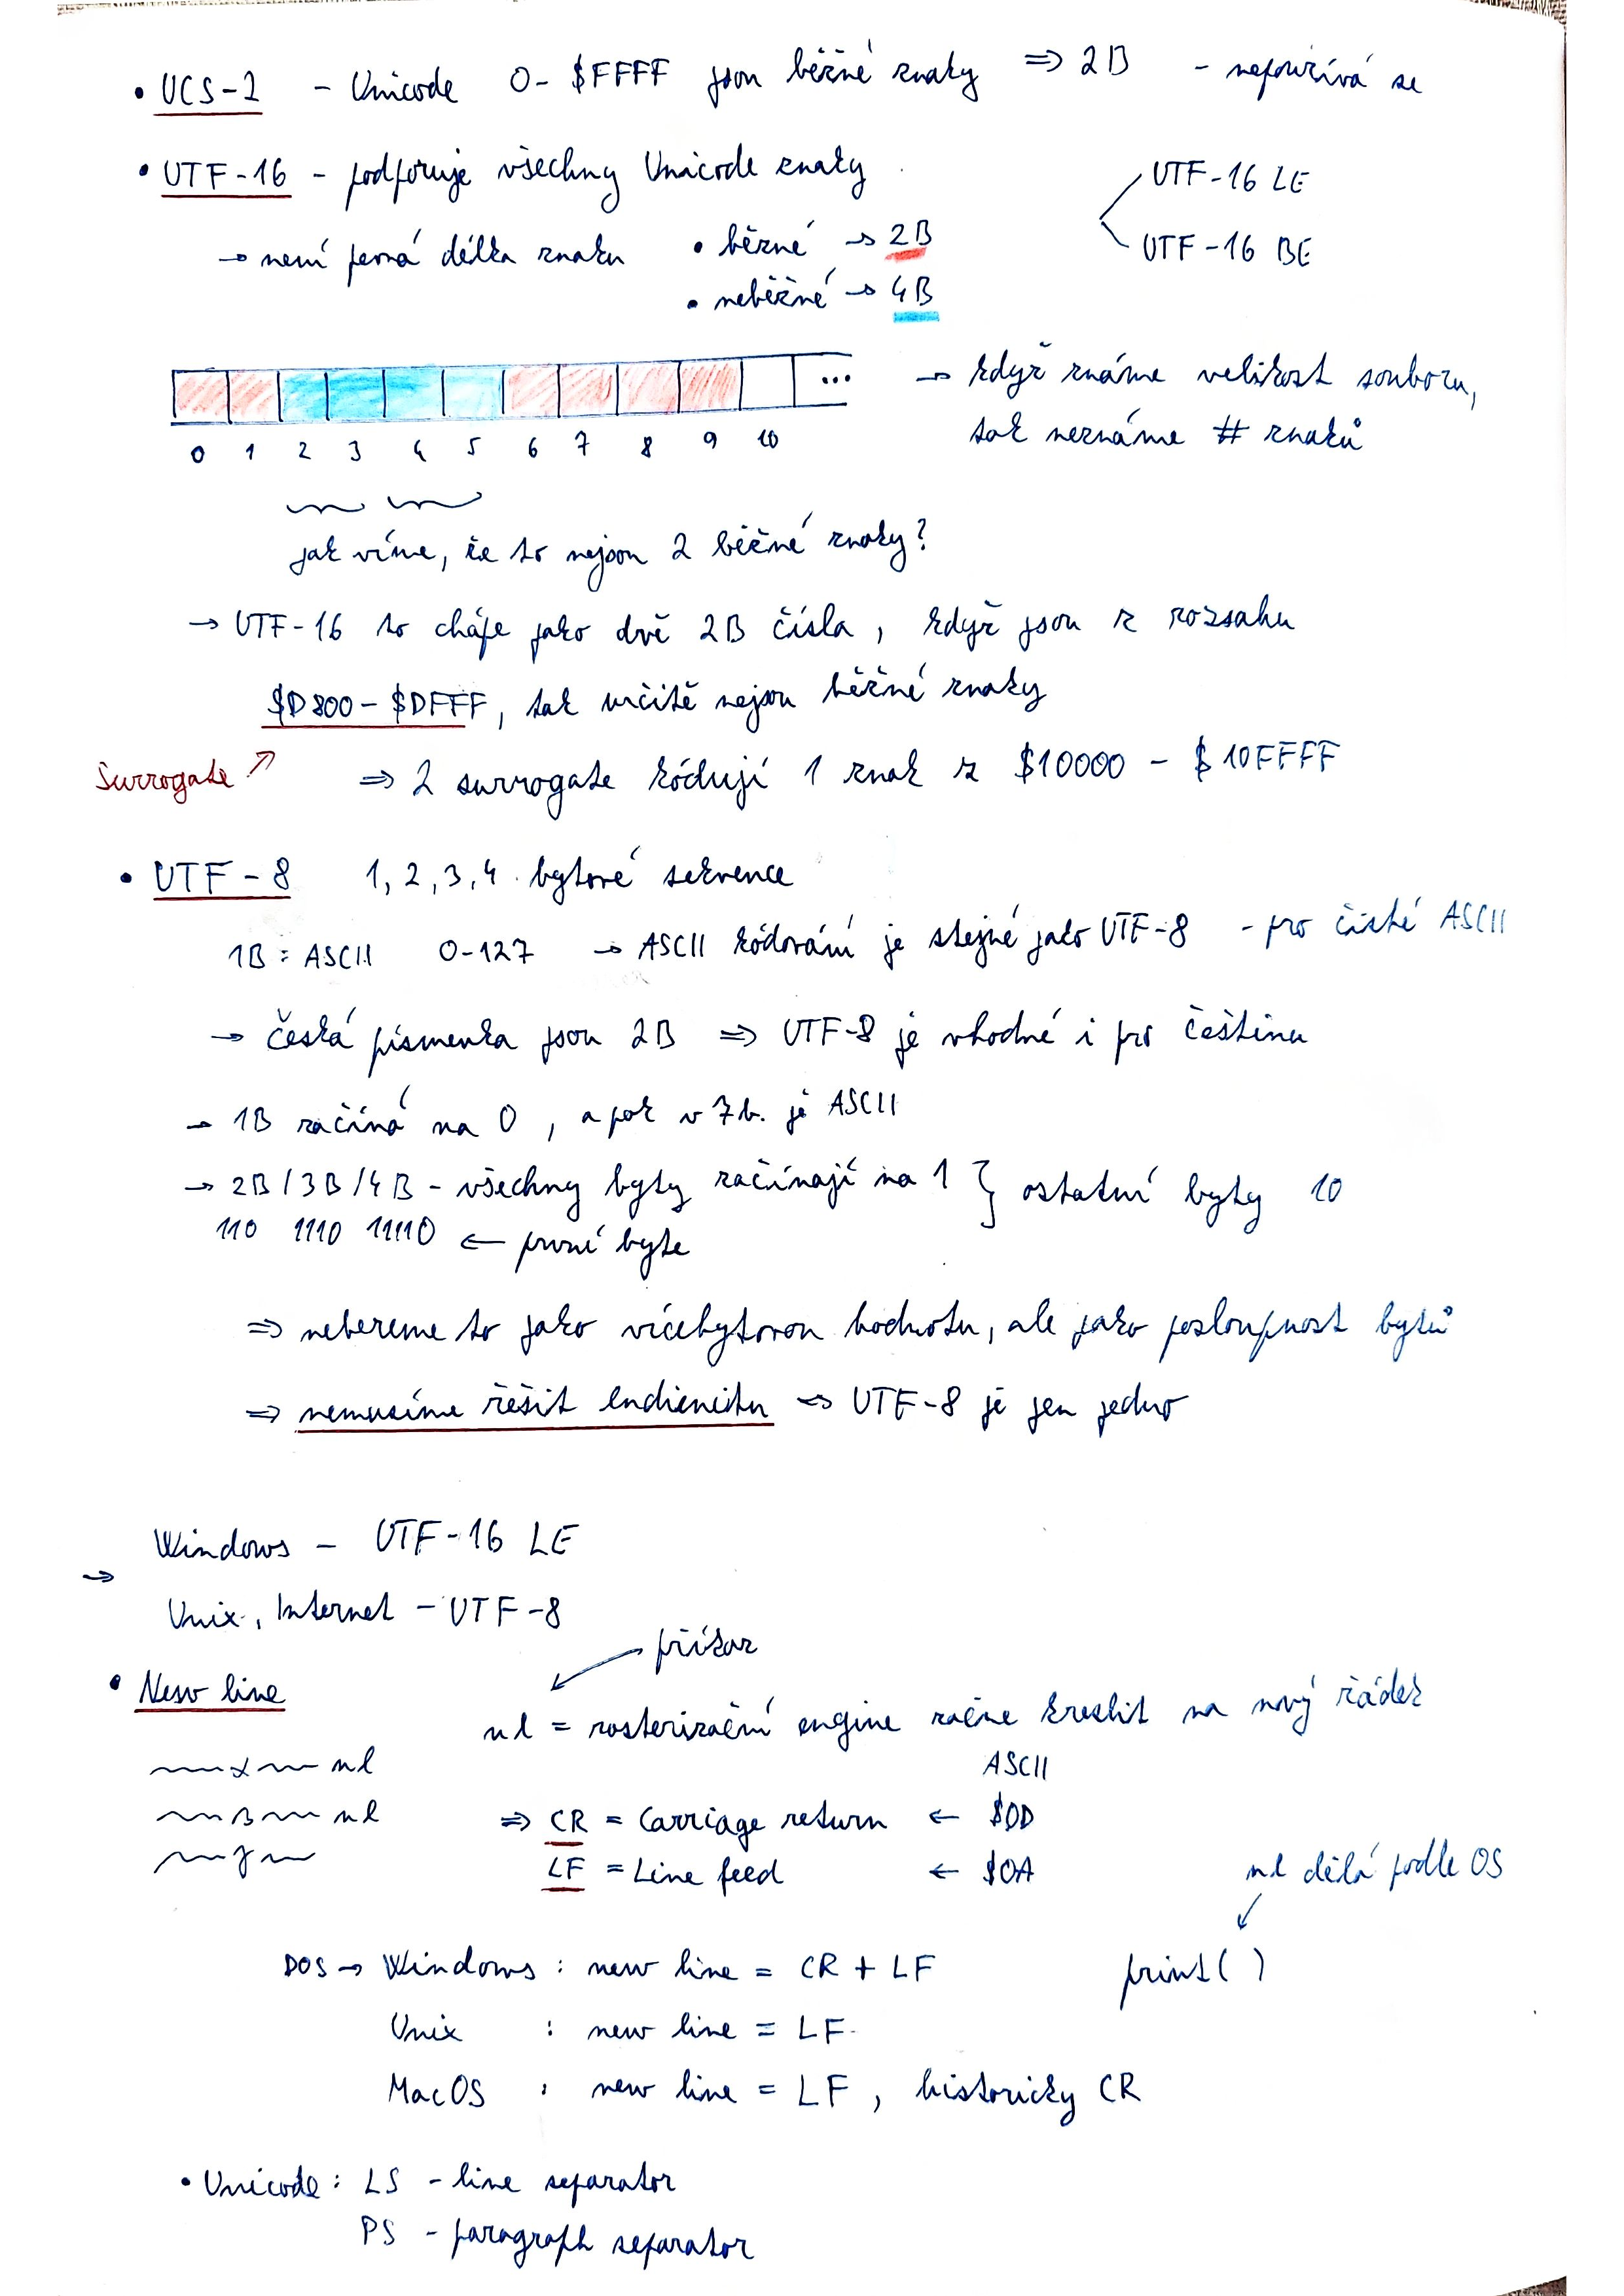 • UCS-2 - Unicode 0-$FFFF jsou běžné znaky ⇒ 2B - nepoužívá se
• UTF-16 - podporuje všechny Unicode znaky
UTF-16 LE
UTF-16 BE
→ není pevná délka znaku
• běžné → 2B
• neběžné → 4B
...
0 1 2 3 4 5 6 7 8 9 10
→ když známe velikost souboru,
tak neznáme # znaků
jak víme, že to nejsou 2 běžné znaky?
→ UTF-16 to chápe jako dvě 2B čísla, když jsou z rozsahu
$D800 - $DFFF, tak určitě nejsou běžné znaky
Surrogate ↗
⇒ 2 surrogate kódují 1 znak z $10000 - $10FFFF
• UTF-8 1, 2, 3, 4 bytové sekvence
1B = ASCII 0-127 → ASCII kódování je stejné jako UTF-8 - pro čisté ASCII
→ česká písmenka jsou 2B ⇒ UTF-8 je vhodné i pro češtinu
→ 1B začíná na 0, a pak v 7b. je ASCII
→ 2B/3B/4B - všechny byty začínají na 1 } ostatní byty 10
110 1110 11110 ← první byte
⇒ nebereme to jako vícebytovou hodnotu, ale jako posloupnost bytů
⇒ nemusíme řešit endienitu ⇒ UTF-8 je jen jedno
→ Windows - UTF-16 LE
Unix, Internet - UTF-8
příkaz
• New line
nl = rasterizační engine začne kreslit na nový řádek
α nl
β nl
γ
ASCII
⇒ CR = Carriage return ← $0D
LF = Line feed ← $0A
nl dělá podle OS
DOS → Windows : new line = CR + LF
print( )
Unix : new line = LF
MacOS : new line = LF, historicky CR
• Unicode: LS - line separator
PS - paragraph separator